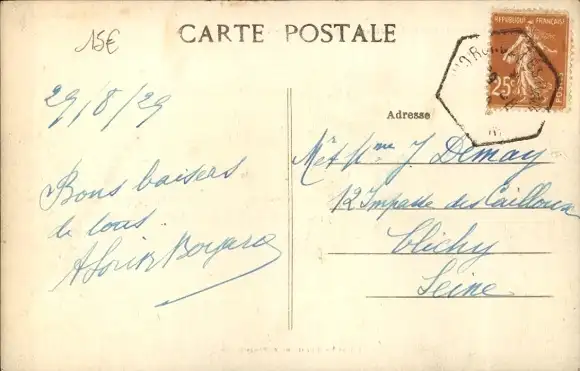 15€
CARTE POSTALE
REPUBLIQUE FRANÇAISE
25c
POSTES
29/8/29
Adresse
Mr et Mme J. Demay
12 Impasse des Cailloux
Clichy
Seine
Bons baisers
de tous